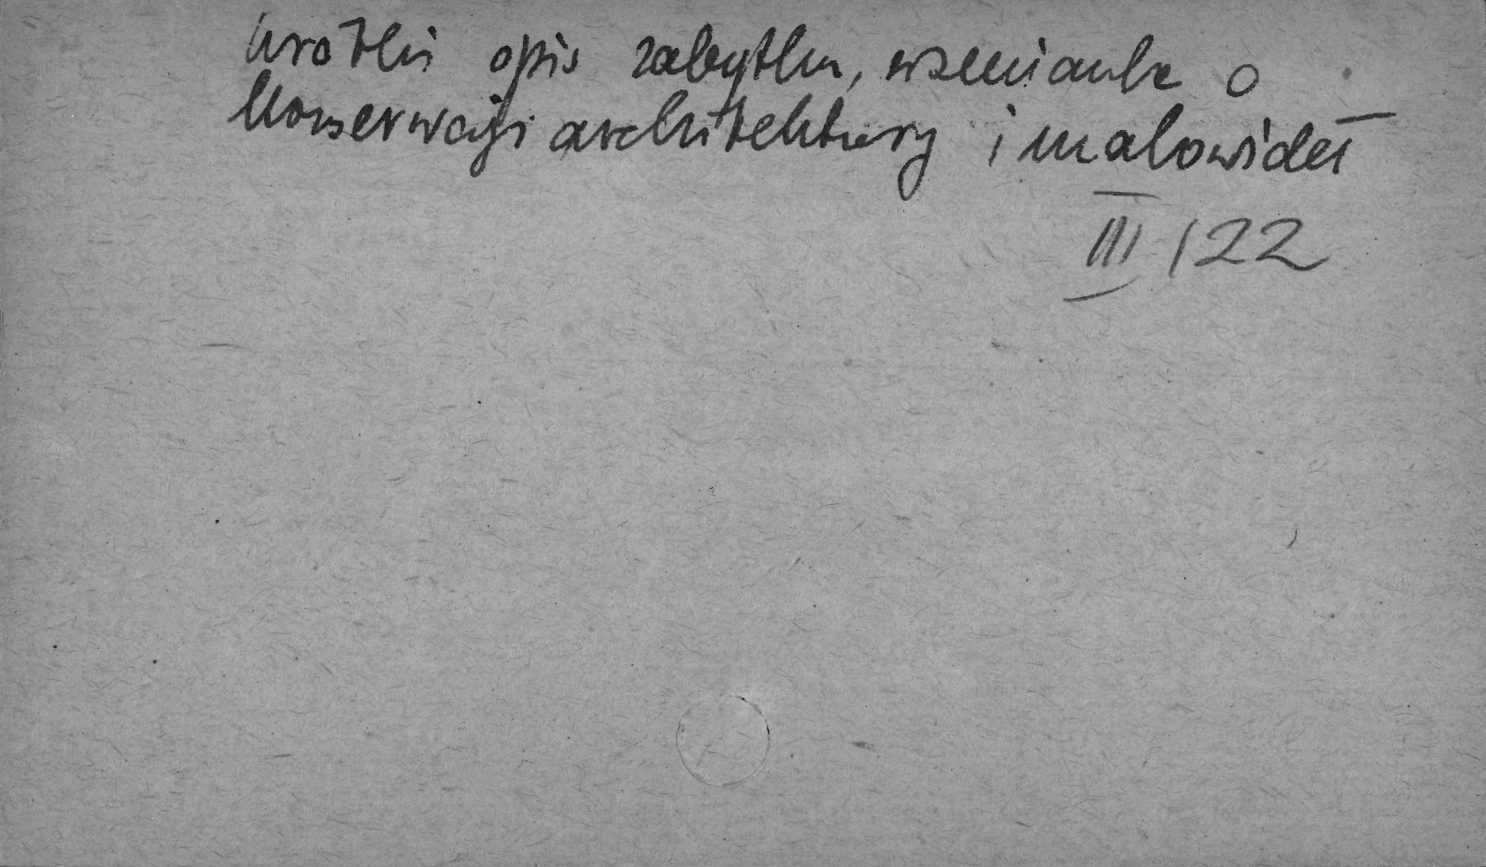 krótki opis zabytku, wzmianka o
konserwacji architektury i malowideł
III/22